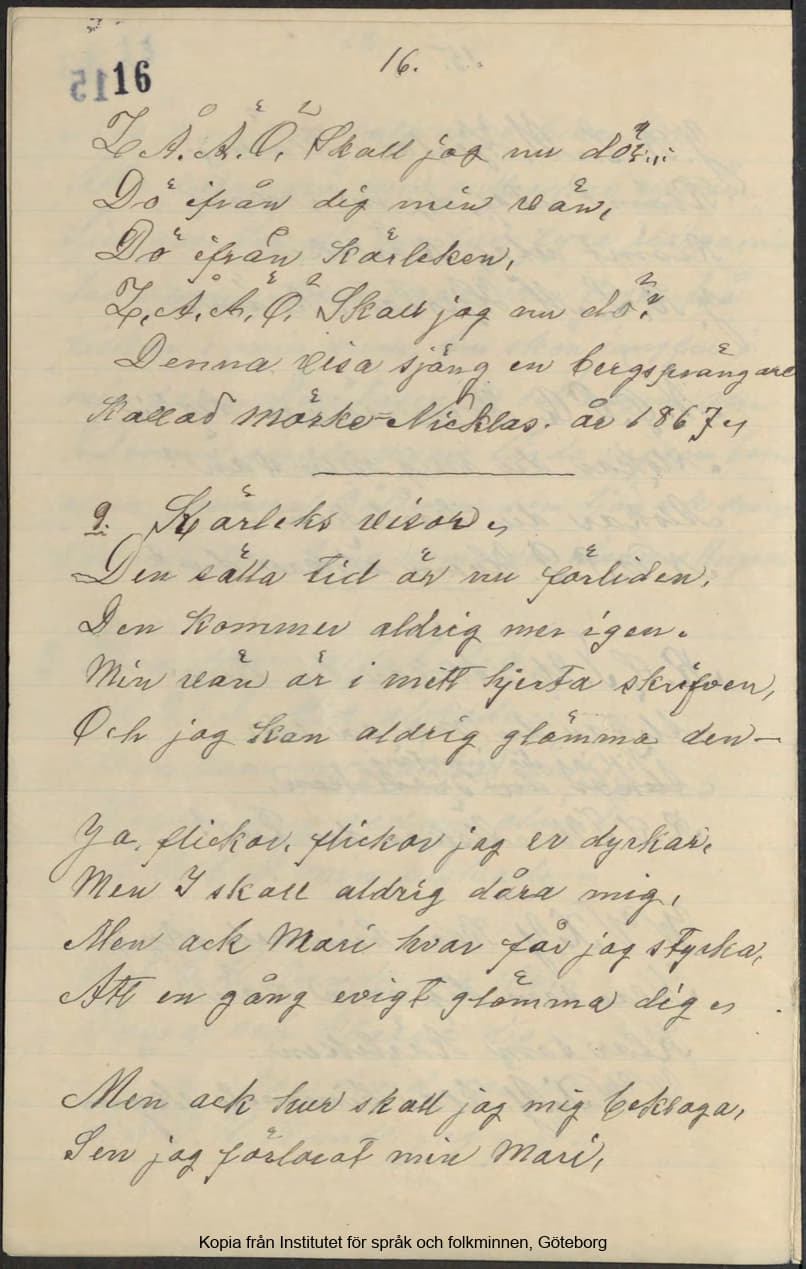 16.
16
15
Z. Å. Ä. Ö. Skall jag nu dö?,,:
Dö ifrån dig min vän,
Dö ifrån Kärleken,
Z. Å. Ä. Ö. Skall jag nu dö?
Denna visa sjöng en bergspränɡare
Kallad Mörke-Nicklas. år 1867,,
9. Kärleks visor,,
Den sälla tid är nu förliden,
Den Kommer aldrig mer igen.
Min vän är i mitt hjerta skrifven,
Och jag kan aldrig glömma den—
Ja, flickor, flickor jag er dyrkar,
Men I skall aldrig dåra mig,
Men ack Mari hvar får jag styrka,
Att en gång evigt glömma dig,,
Men ack hur skall jag mig beklaga,
Sen jag förlorat min Mari,
Kopia från Institutet för språk och folkminnen, Göteborg